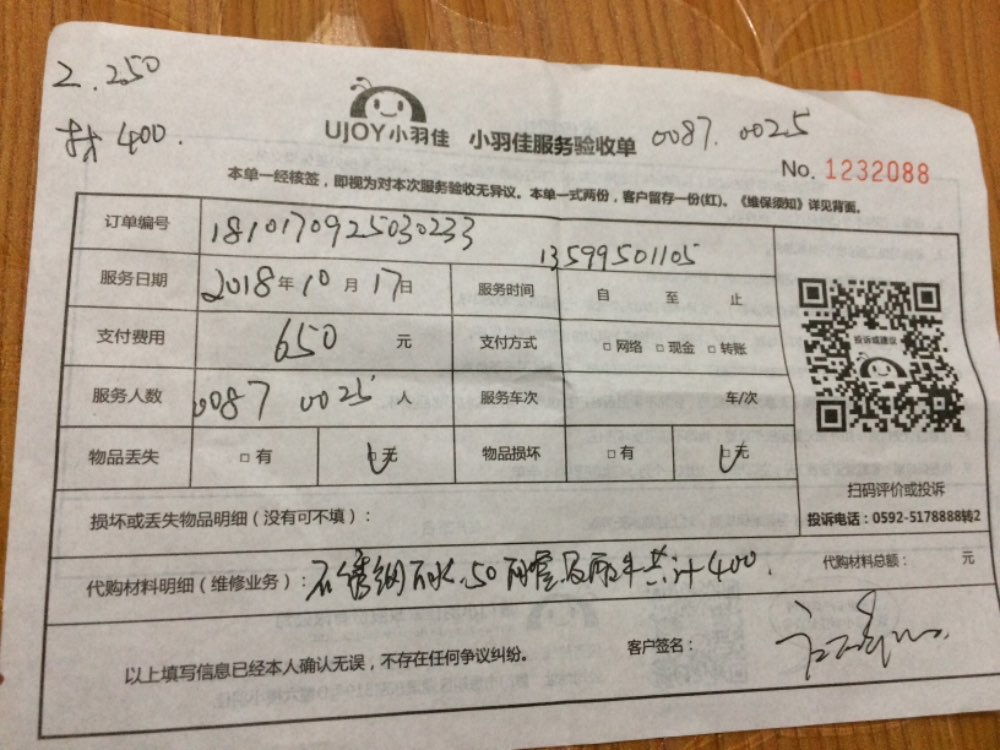 2.250
材 400.
UJOY小羽佳 小羽佳服务验收单 0087. 0025
No. 1232088
本单一经核签，即视为对本次服务验收无异议。本单一式两份，客户留存一份(红)。《维保须知》详见背面。
订单编号 1810170925030233 13599501105
服务日期 2018年10月17日 服务时间 自 至 止
支付费用 650 元 支付方式 □ 网络 □ 现金 □ 转账
投诉或建议
服务人数 0087 0025 人 服务车次 车/次
物品丢失 □ 有 □ 无 物品损坏 □ 有 □ 无
扫码评价或投诉
损坏或丢失物品明细（没有可不填）：
投诉电话：0592-5178888转2
代购材料明细（维修业务）： 不锈钢 50 共计400. 代购材料总额： 元
以上填写信息已经本人确认无误，不存在任何争议纠纷。 客户签名：